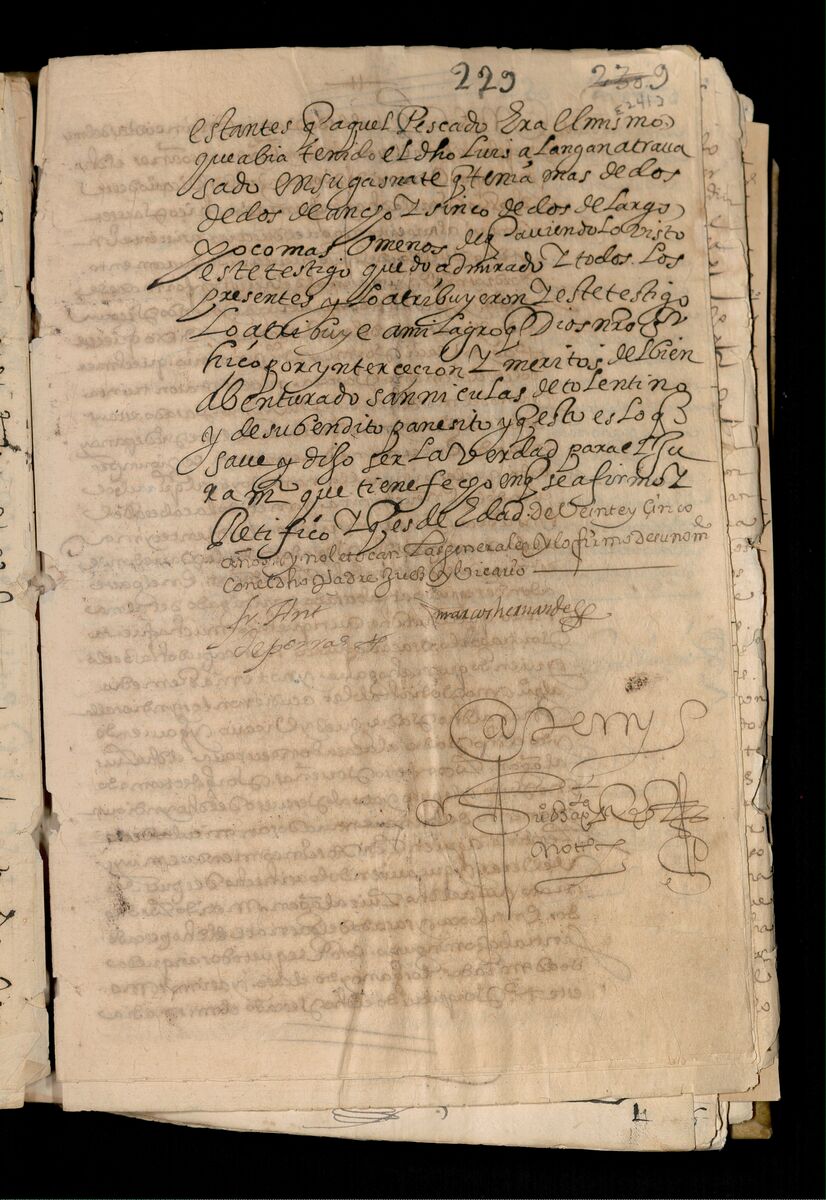 229 239
estantes q aquel Pescado Era el mismo
que abia tenido el dho Luis a Langan atraua
sado en su gasnate q tenia mas de dos
dedos de ancho y sinco dedos de Largo
poco mas o menos de q auiendo Lo visto
este testigo quedo admirado y todos Los
presentes y Lo atribuyeron y este testigo
Lo atribuye a milagro q Dios nro Sr
hiço por yntercecion y meritos del bien
abenturado san niculas de tolentino
y de su bendito panesito y q esto es lo q
saue y diso ser La verdad para el Ju
ram to que tiene fecho en q se afirmo y
Retifico y q es de Edad de Veinte y Cinco
años y no le tocan Las generales y lo firmo de su nom e
con el dho Padre Juez y Vicario
fr. Ant
de porras
marcos hernandes
Ante my
Not